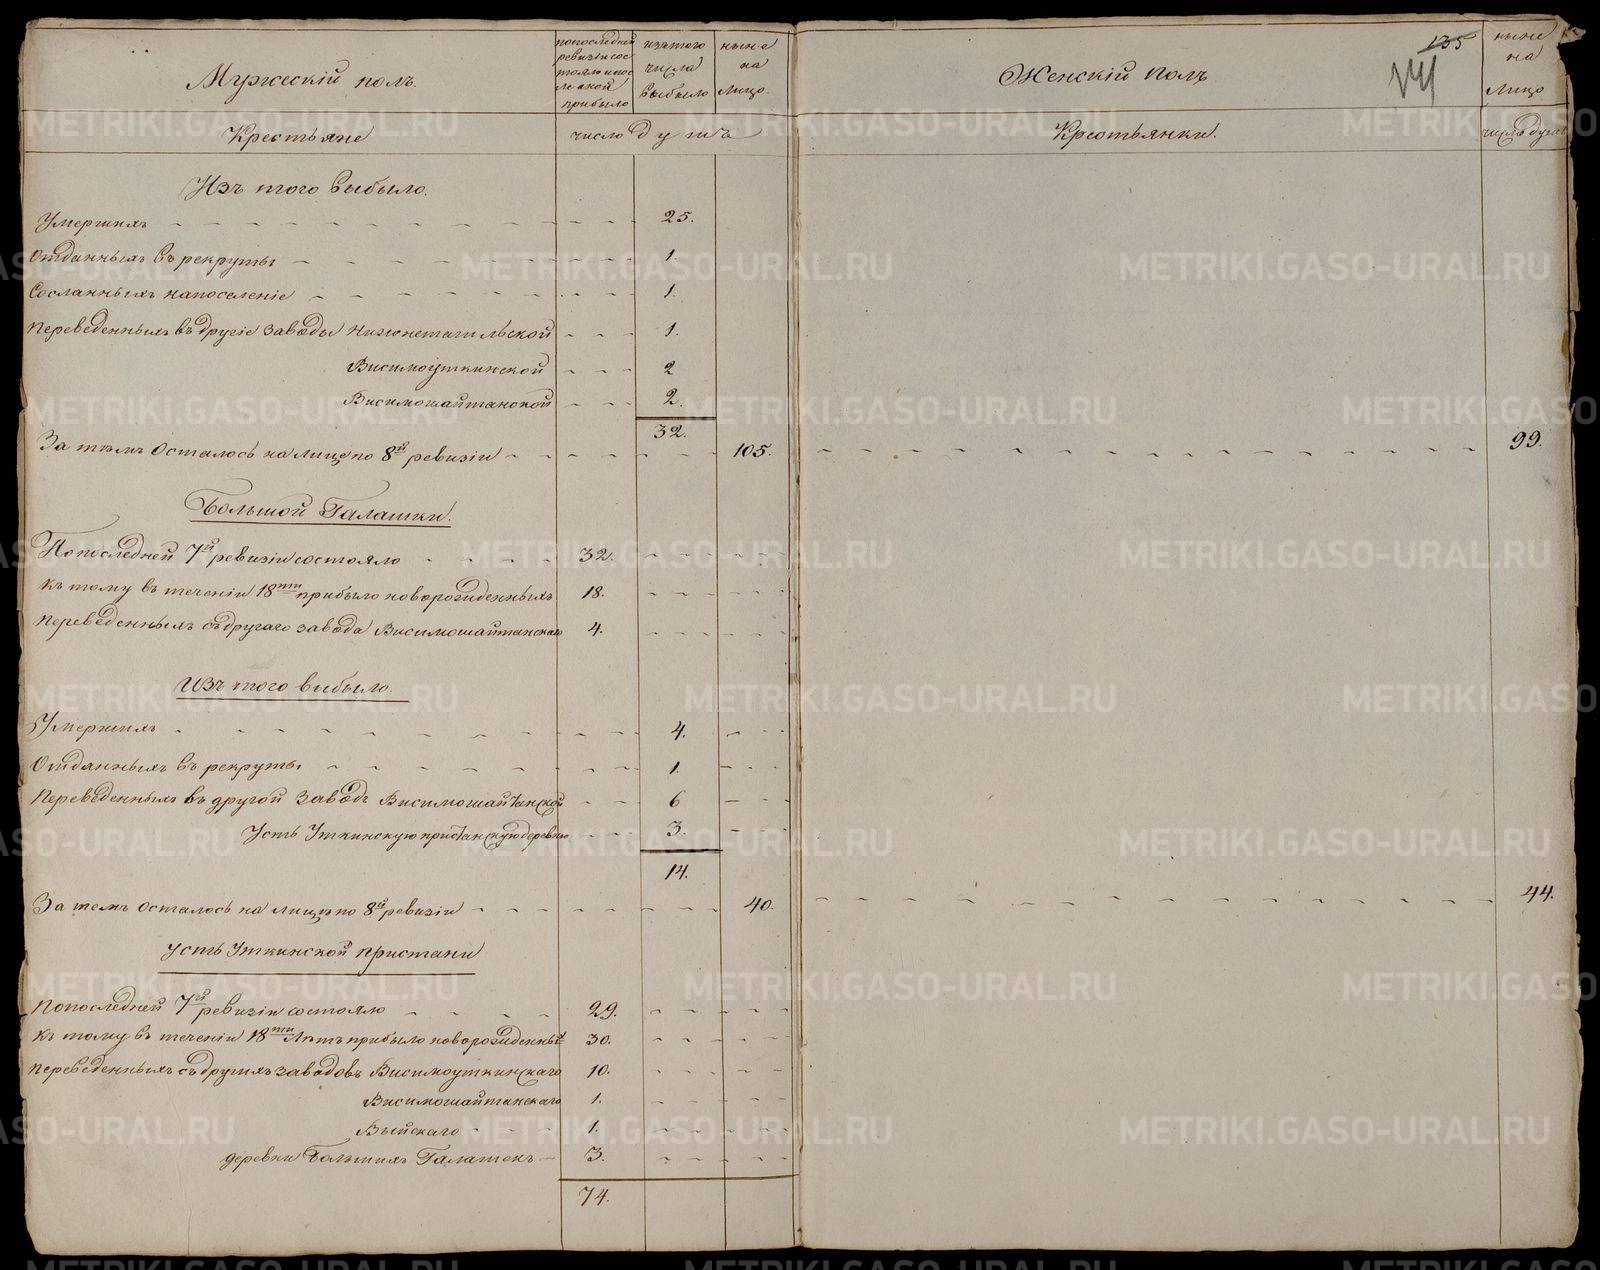 Мужескій полъ.
попоследней ревизіи состояло и после оной прибыло
изътого числа выбыло
ныне на лицо.
Женскій полъ
135
ныне на лицо
Крестьяне
число душъ
Крестьянки.
число душъ
Изъ того выбыло.
Умершихъ 25.
Отданныхъ въ рекруты 1.
Сосланныхъ напоселеніе 1.
Переведенныхъ въ другіе заводы Нижнетагильской 1.
Висимоуткинской 2
Висимошайтанской 2.
32.
За тѣмъ осталось на лице по 8й ревизіи 105. 99.
Большой Галашки.
Попоследней 7й ревизіи состояло 32.
къ тому въ теченіи 18ти прибыло новорожденныхъ 18.
переведенныхъ съдругаго завода Висимошайтанскаго 4.
Изъ того выбыло.
Умершихъ 4.
Отданныхъ въ рекруты 1.
Переведенныхъ въ другой заводъ Висимошайтанской 6
Усть Уткинскую пристанскую деревню 3.
14.
За темъ осталось на лицо по 8й ревизіи 40. 44.
Усть Уткинской пристани
Попоследней 7й ревизіи состояло 29.
къ тому въ теченіи 18ти лѣтъ прибыло новорожденныхъ 30.
переведенныхъ съдругихъ заводовъ Висимоуткинскаго 10.
Висимошайтанскаго 1.
Выйскаго 1.
деревни Большихъ Галашекъ 3.
74.
METRIKI.GASO-URAL.RU